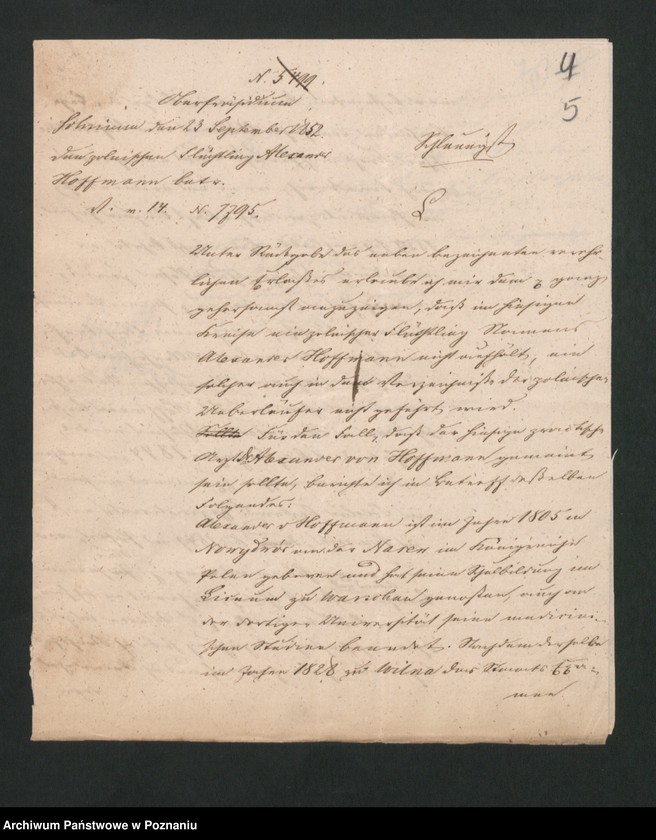 N. 5499.
4
5
Oberpräsidium
den 23 September 1852
den polnischen Flüchtling Alexander
Hoffmann betr.
v. 14. N. 7795.
Schleunigst
Unter Rückgabe des neben bezeichneten verehr-
lichen Erlaßes erlaube ich mir dem p. ganz
gehorsamst anzuzeigen, daß im hiesigen
Kreise ein polnischer Flüchtling Namens
Alexander Hoffmann nicht aufhält, ein
solcher auch in dem Verzeichniße der polnischen
Ueberläufer nicht geführt wird.
Sollte Für den Fall, daß der hiesige practische
Arzt Alexander von Hoffmann gemeint
sein sollte, berichte ich in Betreff desselben
Folgendes:
Alexander v Hoffmann ist im Jahre 1805 in
Nowydwor an der Narew im Königreiche
Polen geboren und hat seine Schulbildung im
Liceum zu Warschau genossen, auch an
der dortigen Universität seine medicini-
schen Studien beendet. Nachdem derselbe
im Jahre 1828 zu Wilna das Staats Exa-
men
Archiwum Państwowe w Poznaniu